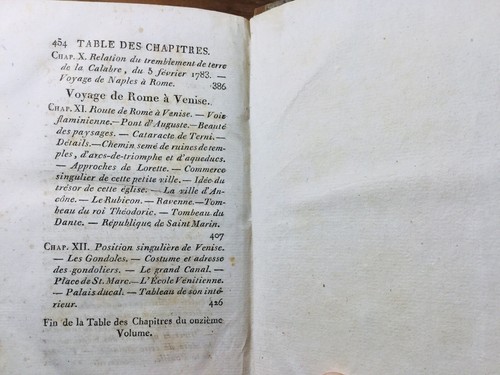 454 TABLE DES CHAPITRES.
CHAP. X. Relation du tremblement de terre
de la Calabre, du 5 février 1783. —
Voyage de Naples à Rome. 386
Voyage de Rome à Venise.
CHAP. XI. Route de Rome à Venise. — Voie
flaminienne. — Pont d'Auguste. — Beauté
des paysages. — Cataracte de Terni. —
Détails. — Chemin semé de ruines de tem-
ples, d'arcs-de-triomphe et d'aqueducs.
— Approches de Lorette. — Commerce
singulier de cette petite ville. — Idée du
trésor de cette église. — La ville d'An-
cône. — Le Rubicon. — Ravenne. — Tom-
beau du roi Théodoric. — Tombeau du
Dante. — République de Saint Marin.
407
CHAP. XII. Position singulière de Venise.
— Les Gondoles. — Costume et adresse
des gondoliers. — Le grand Canal. —
Place de St. Marc. — L'École Vénitienne.
— Palais ducal. — Tableau de son inté-
rieur. 426
Fin de la Table des Chapitres du onzième
Volume.